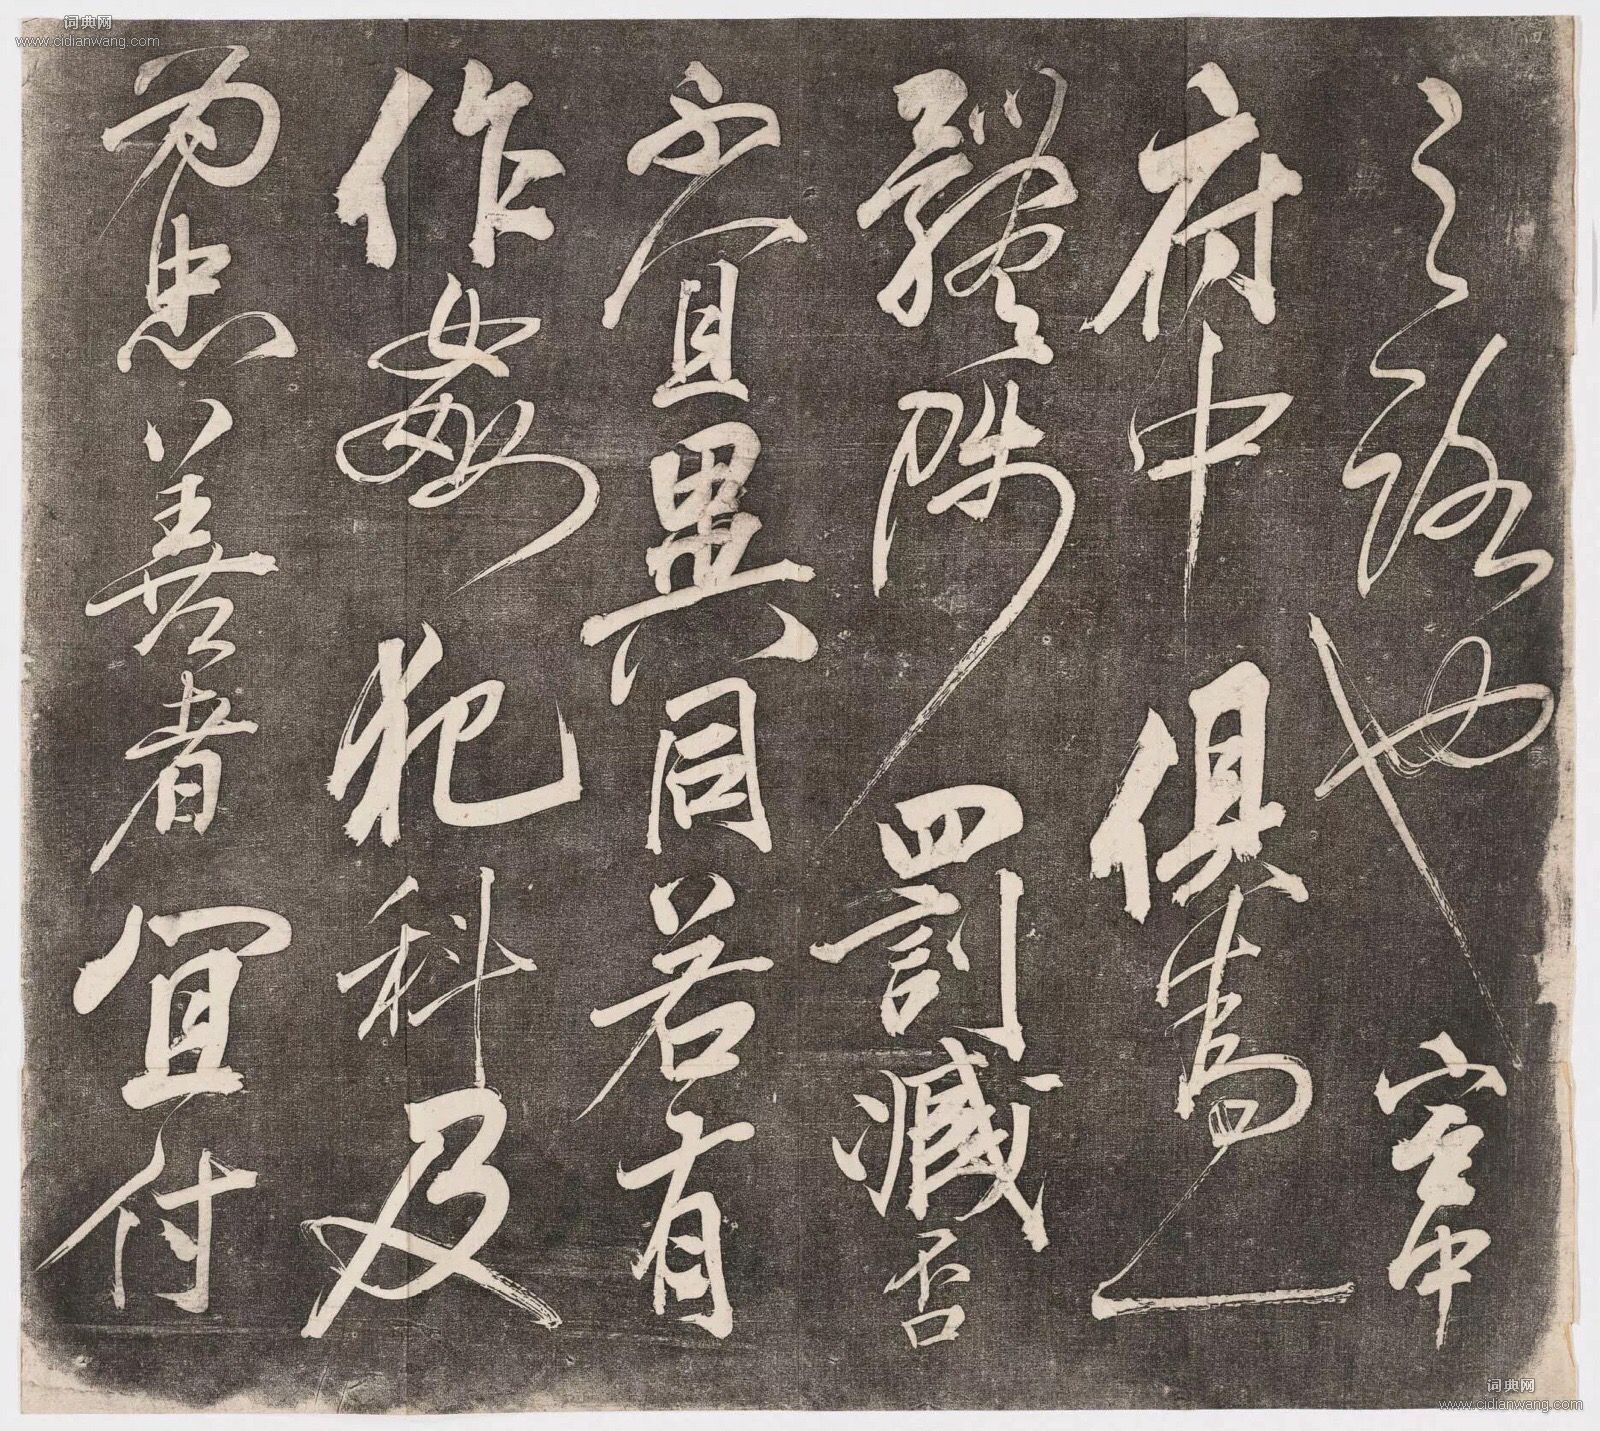 词典网
www.cidianwang.com
之路也宮中
府中俱為一
體陟罰臧否
不宜異同若有
作姦犯科及
為忠善者宜付
词典网
www.cidianwang.com